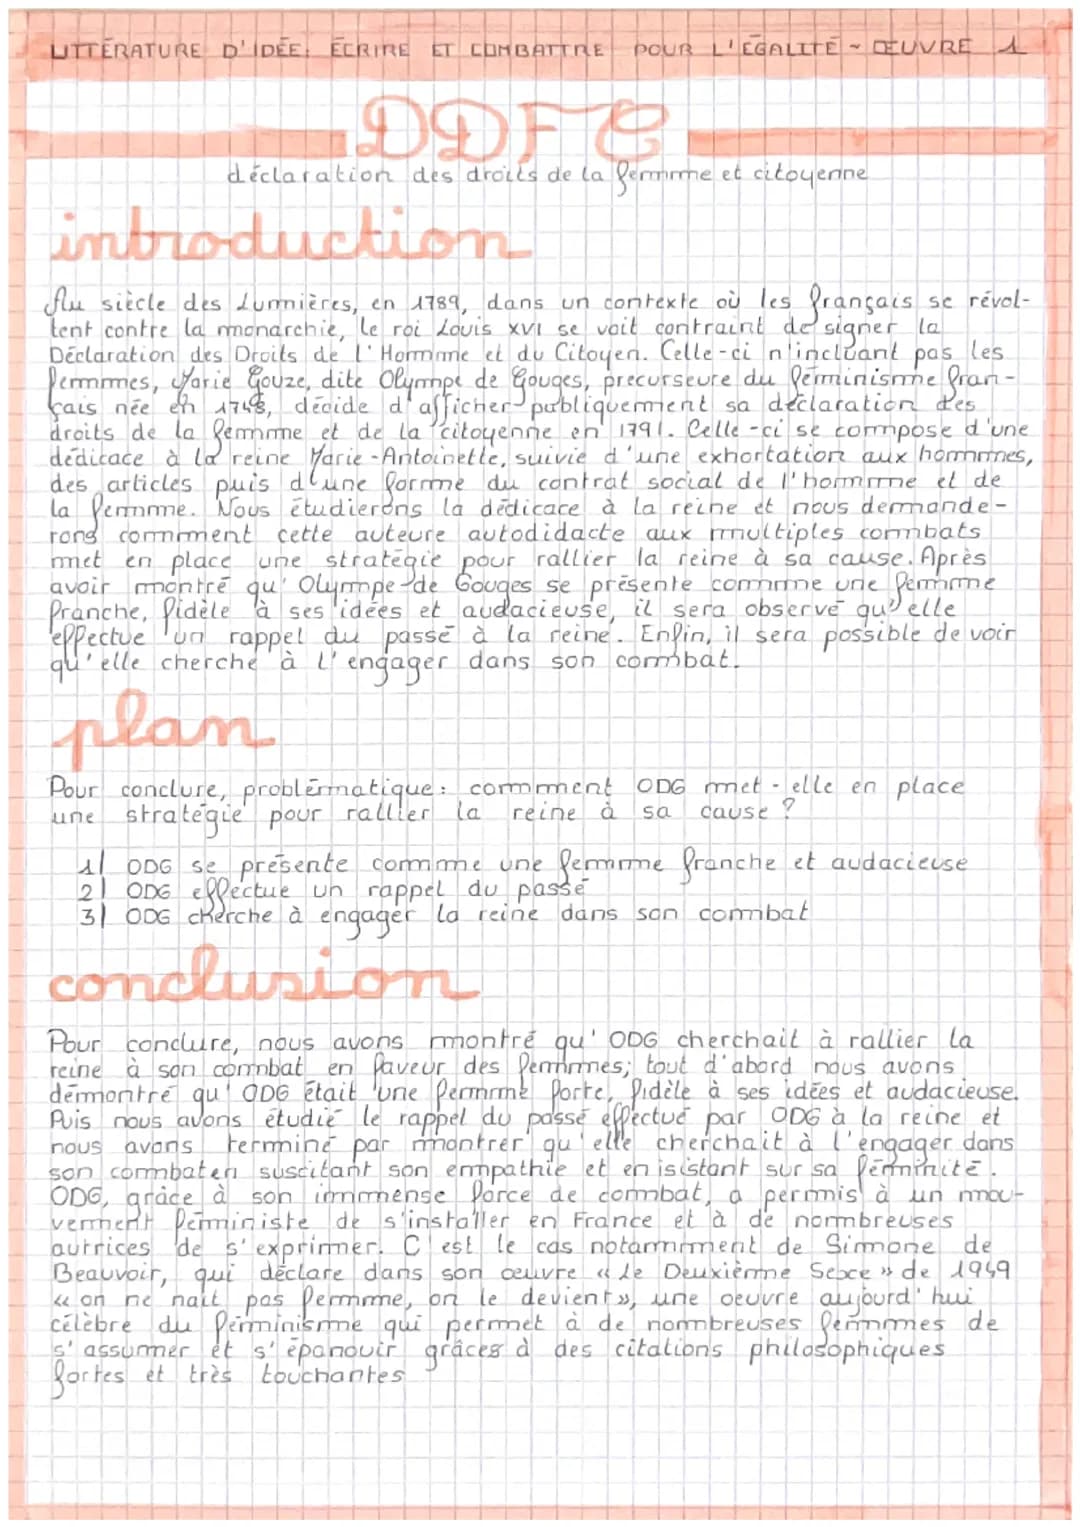 LITTÉRATURE D'IDÉE: ÉCRIRE ET COMBATTRE POUR L'ÉGALITÉ ~ ŒUVRE 1
DDFC
déclaration des droits de la femme et citoyenne
introduction
Au siècle des Lumières, en 1789, dans un contexte où les français se révol-
tent contre la monarchie, le roi Louis XVI se voit contraint de signer la
Déclaration des Droits de l'Homme et du Citoyen. Celle-ci n'incluant pas les
femmes, Marie Gouze, dite Olympe de Gouges, precurseure du féminisme fran-
çais née en 1748, décide d'afficher publiquement sa déclaration des
droits de la femme et de la citoyenne en 1791. Celle-ci se compose d'une
dédicace à la reine Marie-Antoinette, suivie d'une exhortation aux hommes,
des articles puis d'une forme du contrat social de l'homme et de
la femme. Nous étudierons la dédicace à la reine et nous demande-
rons comment cette auteure autodidacte aux multiples combats
met en place une stratégie pour rallier la reine à sa cause. Après
avoir montré qu'Olympe de Gouges se présente comme une femme
franche, fidèle à ses idées et audacieuse, il sera observé qu'elle
effectue un rappel du passé à la reine. Enfin, il sera possible de voir
qu'elle cherche à l'engager dans son combat.
plan
Pour conclure, problématique: comment ODG met-elle en place
une stratégie pour rallier la reine à sa cause ?
1/ ODG se présente comme une femme franche et audacieuse
2/ ODG effectue un rappel du passé
3/ ODG cherche à engager la reine dans son combat
conclusion
Pour conclure, nous avons montré qu'ODG cherchait à rallier la
reine à son combat en faveur des femmes; tout d'abord nous avons
démontré qu'ODG était une femme forte, fidèle à ses idées et audacieuse.
Puis nous avons étudié le rappel du passé effectué par ODG à la reine et
nous avons terminé par montrer qu'elle cherchait à l'engager dans
son combat en suscitant son empathie et en isistant sur sa féminité.
ODG, grâce à son immense force de combat, a permis à un mou-
vement féministe de s'installer en France et à de nombreuses
autrices de s'exprimer. C'est le cas notamment de Simone de
Beauvoir, qui déclare dans son œuvre « Le Deuxième Sexe » de 1949
« on ne nait pas femme, on le devient », une oeuvre aujourd'hui
célèbre du féminisme qui permet à de nombreuses femmes de
s'assumer et s'épanouir grâces à des citations philosophiques
fortes et très touchantes